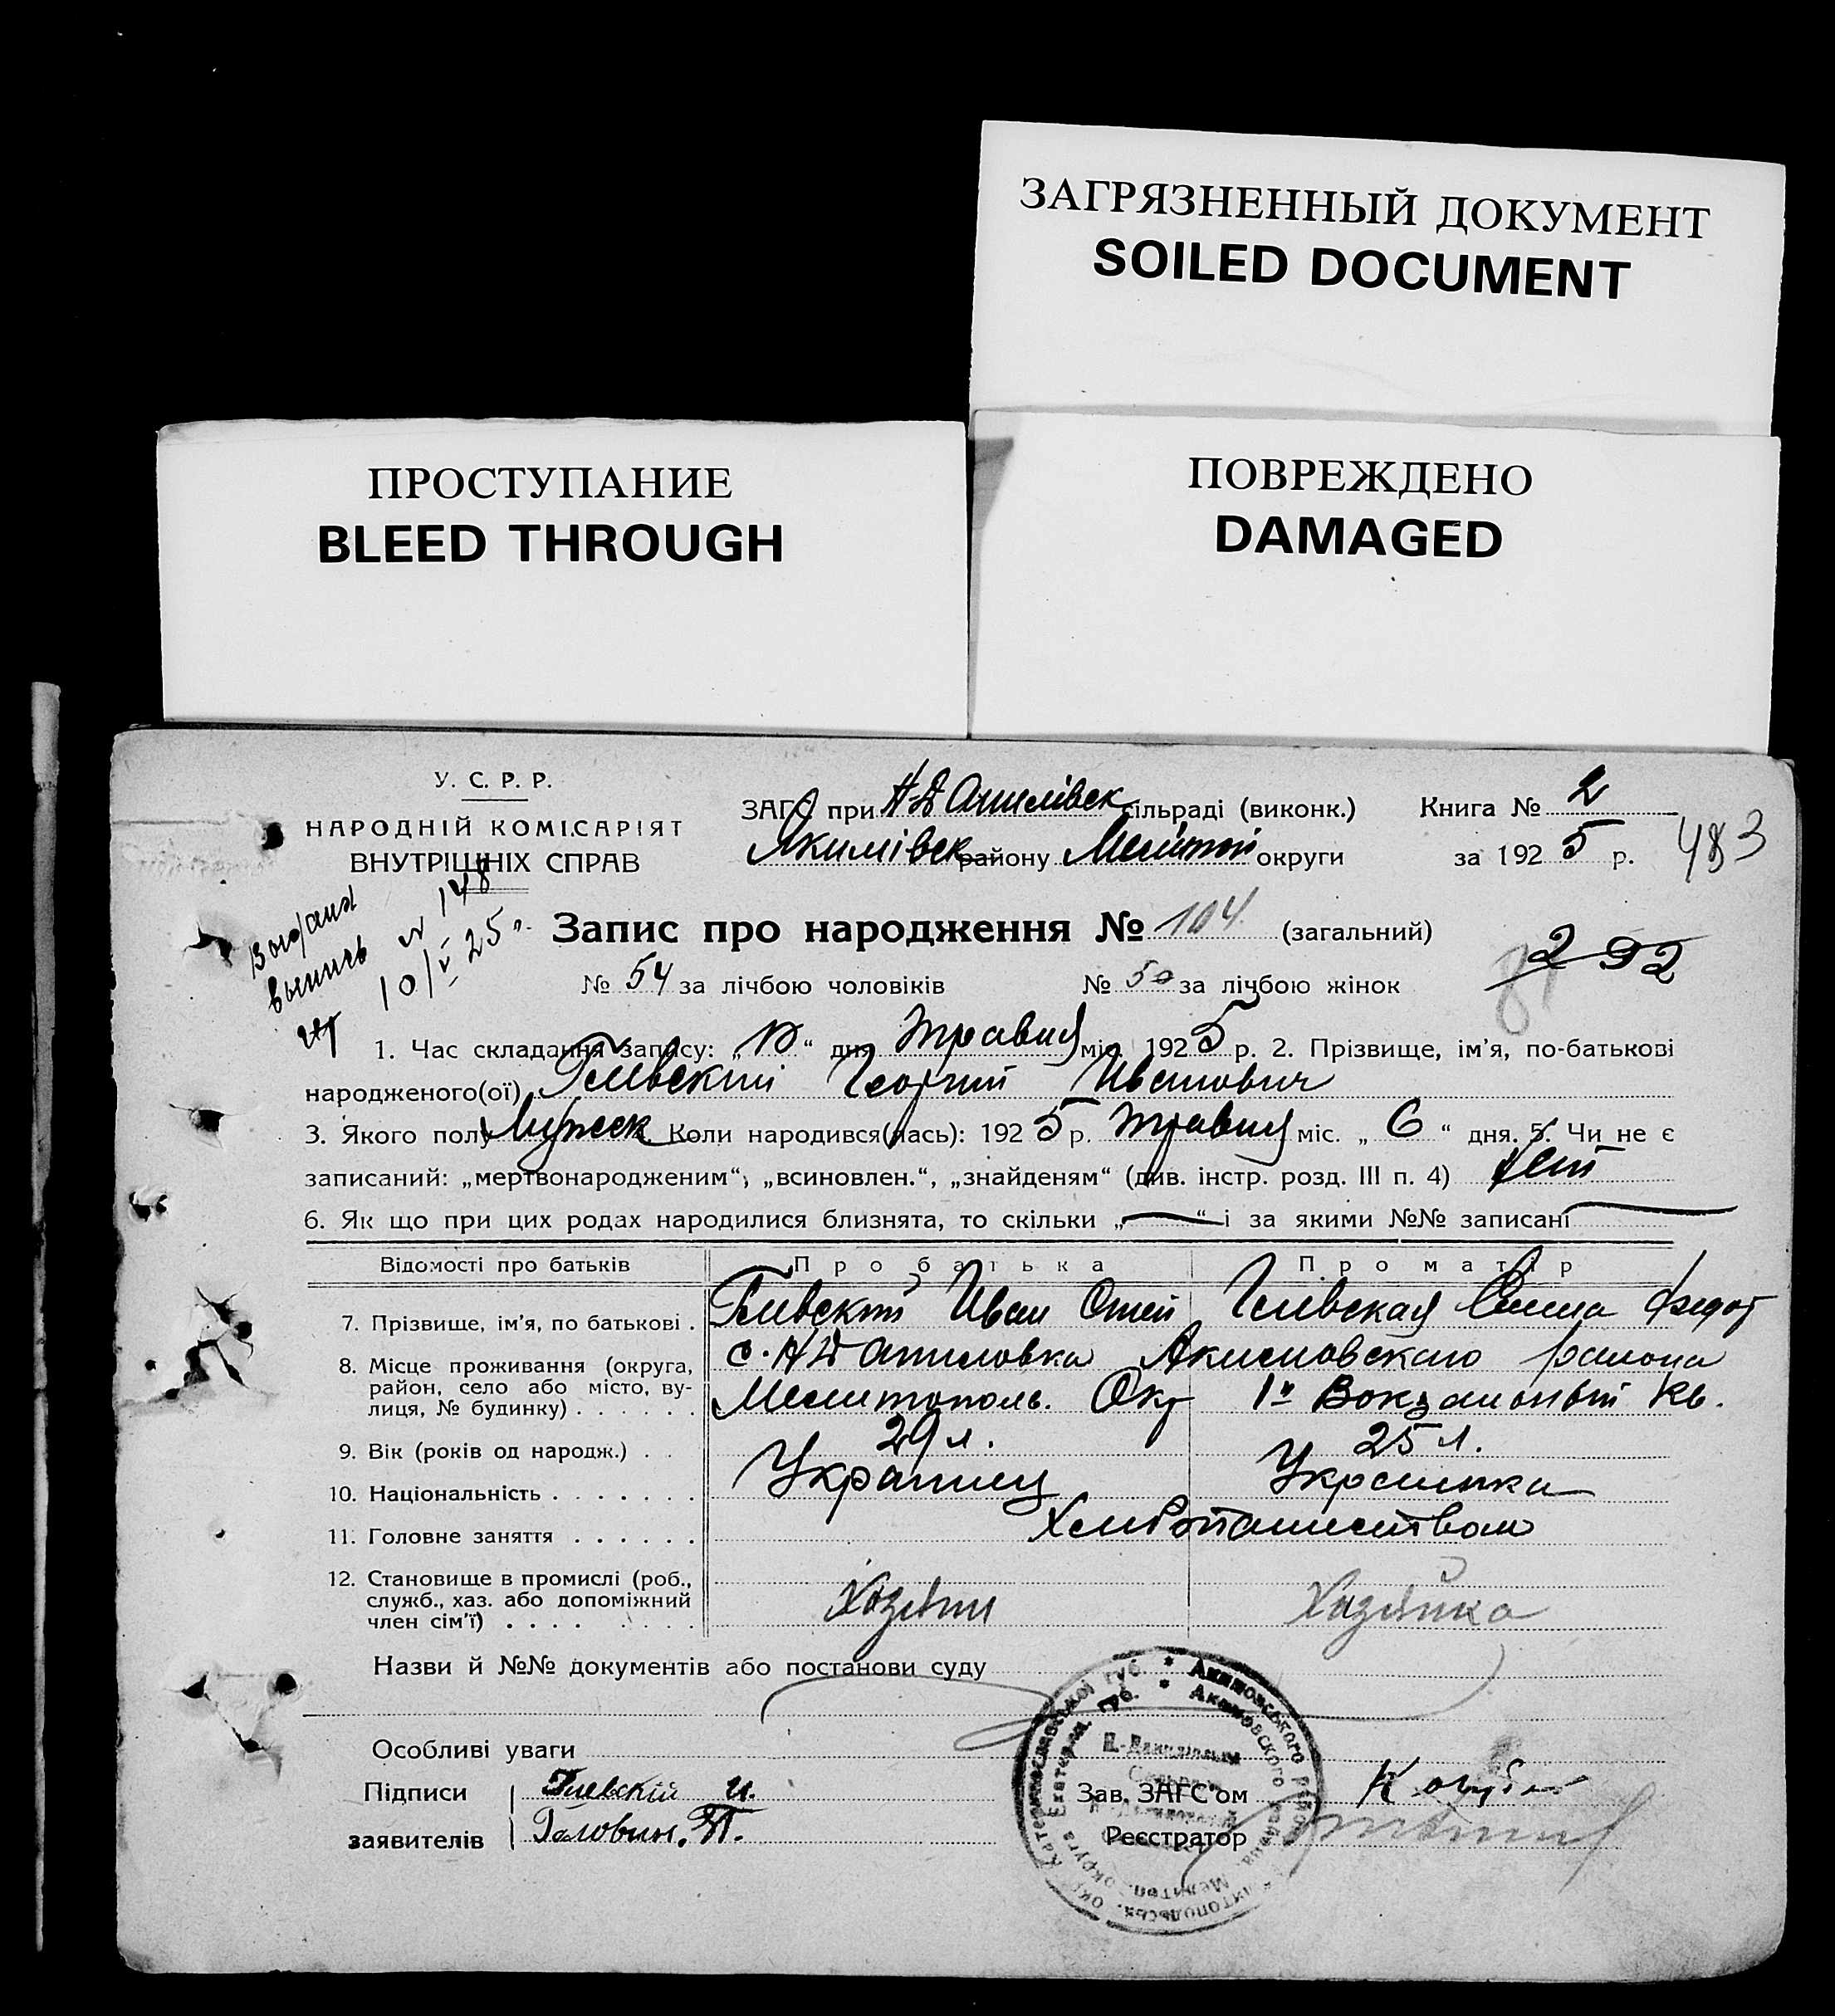 ЗАГРЯЗНЕННЫЙ ДОКУМЕНТ
SOILED DOCUMENT
ПРОСТУПАНИЕ
BLEED THROUGH
ПОВРЕЖДЕНО
DAMAGED
У. С. Р. Р.
НАРОДНІЙ КОМІСАРІЯТ
ВНУТРІШНІХ СПРАВ
ЗАГС при сільраді (виконк.) Книга № 2
Якимівск району Меліт округи за 1925 р.
483
выпись № 148
10/V 25
Запис про народження № 104 (загальний)
292
№ 54 за лічбою чоловіків № 50 за лічбою жінок
1. Час складання запису: „10“ дня травня міс. 1925 р. 2. Прізвище, ім'я, по-батькові
народженого(ої) Георгий Иванович
3. Якого полу Мужеск Коли народився(лась): 1925 р. травня міс. „6“ дня. 5. Чи не є
записаний: „мертвонародженим“, „всиновлен.“, „знайденям“ (див. інстр. розд. III п. 4) нет
6. Як що при цих родах народилися близнята, то скільки „—“ і за якими №№ записані —
Відомості про батьків Про батька Про матір
7. Прізвище, ім'я, по батькові . Иван Федот
8. Місце проживання (округа, район, село або місто, ву-лиця, № будинку) . . . . . . с. Н Даниловка Акимовского района
Мелитополь. Окр 1й Вокзальный кв.
9. Вік (років од народж.) . . 29 л. 25 л.
10. Національність . . . . . . . Украинец Украинка
11. Головне заняття . . . . . . Хлебопашеством
12. Становище в промислі (роб., служб., хаз. або допоміжний член сім'ї) . . . . . . . . Хазяин Хазяйка
Назви й №№ документів або постанови суду
Особливі уваги
Підписи И.
заявителів Головин. П.
Зав. ЗАГС'ом
Реєстратор